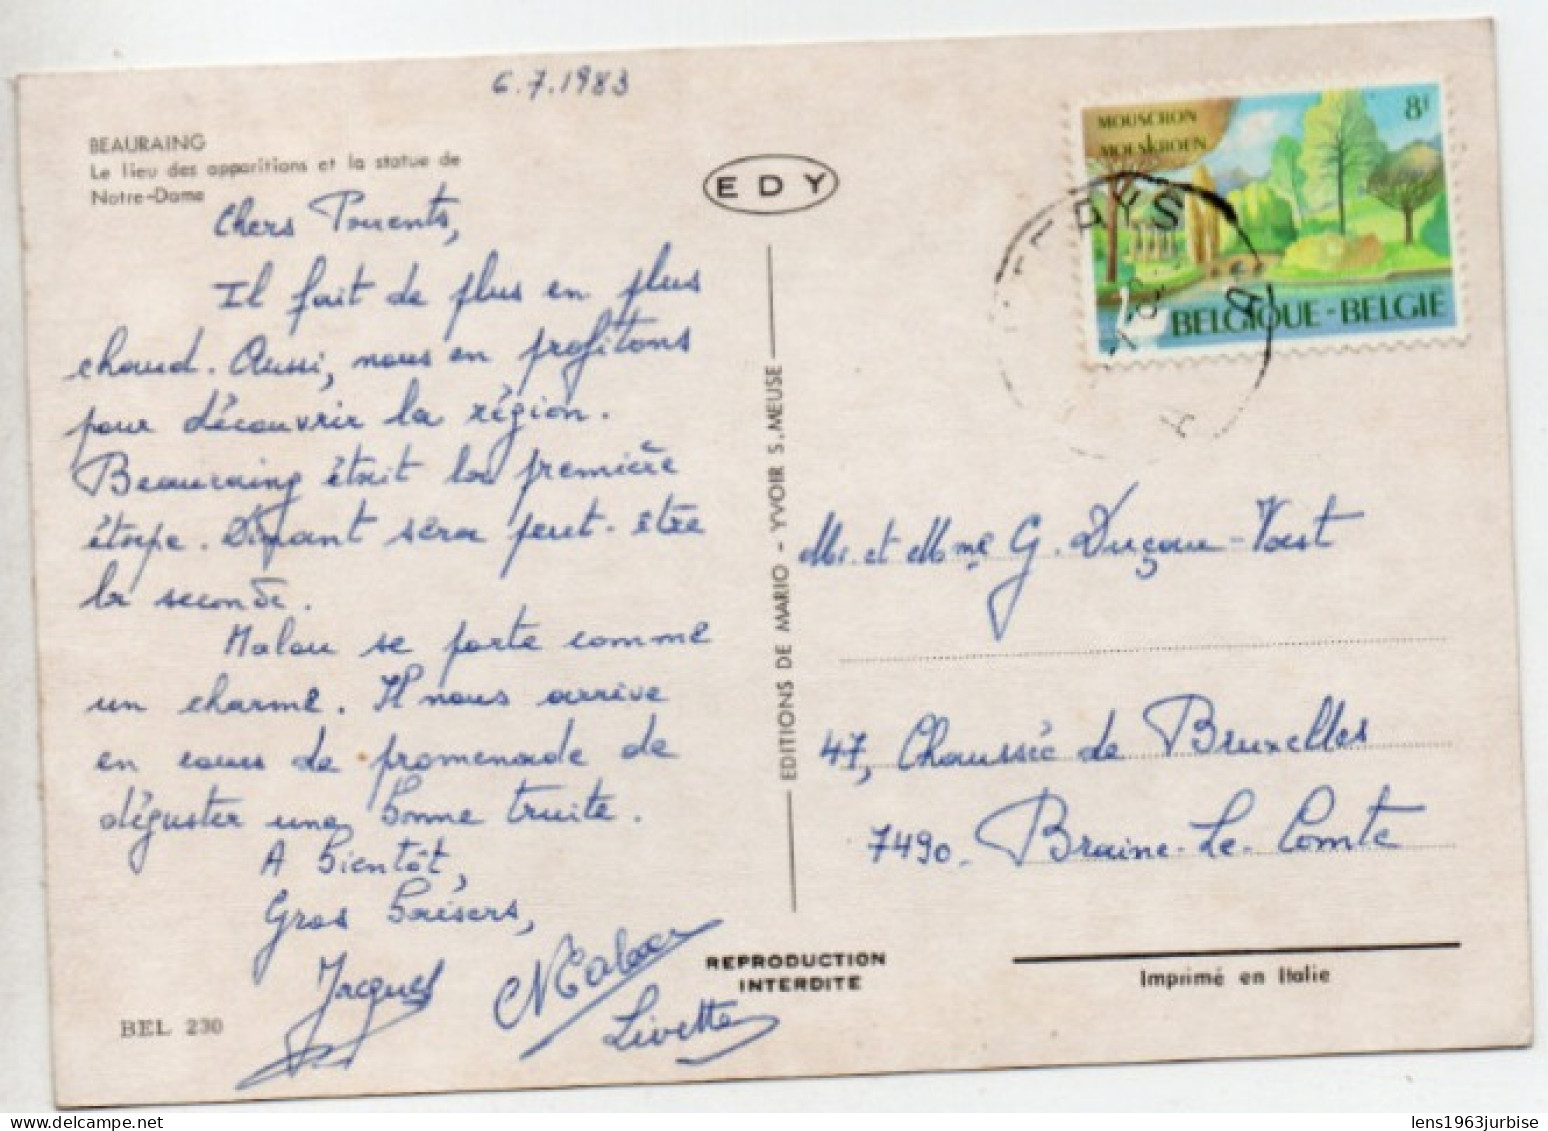 6.7.1983
BEAURAING
Le lieu des apparitions et la statue de
Notre-Dame
Chers Parents,
Il fait de plus en plus
chaud. Aussi, nous en profitons
pour découvrir la région.
Beauraing était la première
étape. Dinant sera peut-être
la seconde.
Malou se porte comme
un charme. Il nous arrive
en cours de promenade de
déguster une bonne truite.
A bientôt,
Gros baisers,
Jacques
Malou
Livette
BEL 230
EDY
EDITIONS DE MARIO - YVOIR S.MEUSE
REPRODUCTION
INTERDITE
MOUSCRON
MOESKROEN
8F
BELGIQUE-BELGIË
Mr. et Mme G. Duçau-Vast
47, Chaussée de Bruxelles
7490. Braine-Le-Comte
Imprimé en Italie
lens1963jurbise